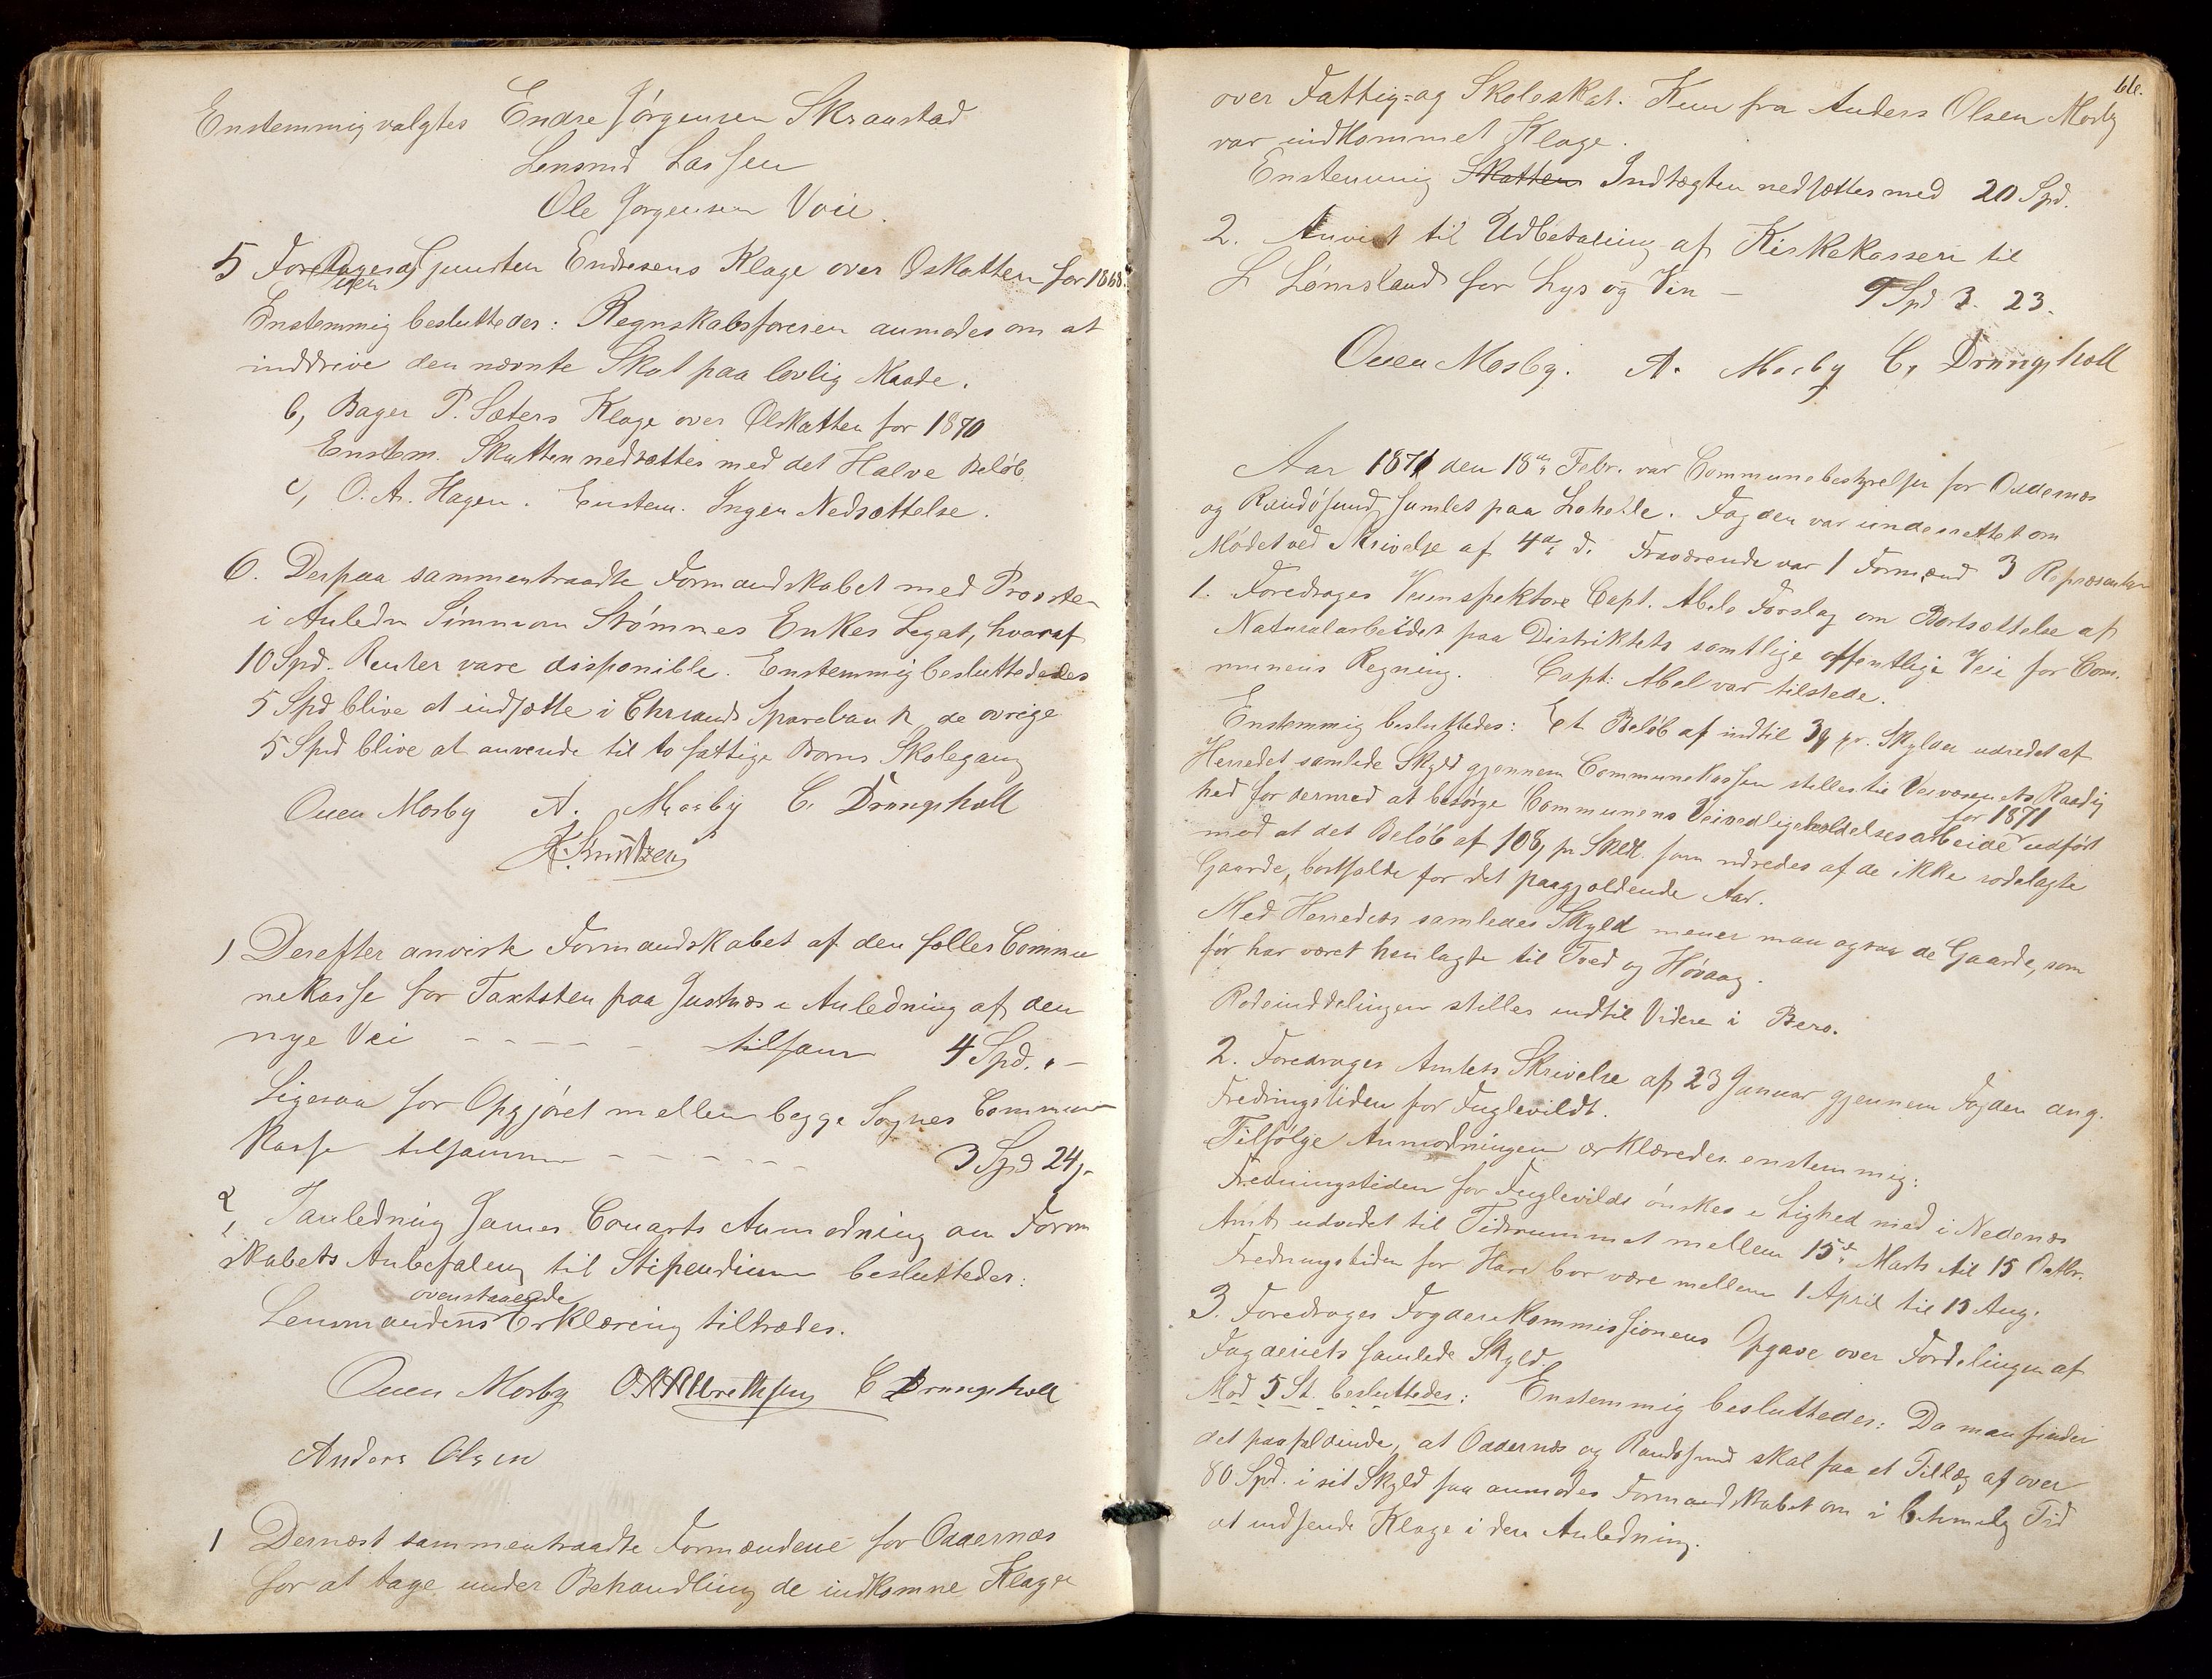 Enstemmig valgtes Endre Jörgensen Skraastad
Lensmd Lassen
Ole Jörgensen Voie.
5 Foredroges a) Gunsten Endresens Klage over Ølskatten for 1868.
Enstemmig besluttedes: Regnskabsføreren anmodes om at
inddrive den nævnte Skat paa lovlig Maade.
b, Bager P. Sæters Klage over Ølskatten for 1870
Enstem. Skatten nedsættes med det Halve Beløb.
c, O. A. Hagen. Enstem. Ingen Nedsættelse.
6. Derpaa sammentraadte Formandskabet med Provsten
i Anledn Simmon Strømnes Enkes Legat, hvoraf
10 Spd. Renter vare disponible. Enstemmig besluttedes
5 Spd blive at indsætte i Chrsands Sparebank, de øvrige
5 Spd blive at anvende til to fattige Børns Skolegang
Ouen Mosby A. Mosby C. Drangsholt
K. Knutzen
1 Derefter anviste Formandskabet af den fælles Commu
nekasse for Taxtsten paa Justnæs i Anledning af den
nye Vei - - - - - tilsam 4 Spd. " -
Ligesaa for Opgjøret mellem begge Sognes Commune
kasse tilsammen - - - - - - 3 Spd 24 s -
2, I anledning James Couarts Anmodning om Form
skabets Anbefaling til Stipendium besluttedes:
ovenstaaende
Lensmandens Erklæring tiltrædes.
Ouen Mosby O. A. Albrethsen C Drangsholt
Anders Olsen
1 Dernæst sammentraadte Formændene for Oddernæs
for at tage under Behandling de indkomne Klager
66.
over Fattig- og Skoleskat. Kun fra Anders Olsen Mosby
var indkommet Klage.
Enstemmig Skatten Indtægten nedsættes med 20 Spd.
2. Anvist til Udbetaling af Kirkekassen til
L Lømsland for Lys og Vin - 9 Spd 3. 23.
Ouen Mosby. A. Mosby C, Drangsholt
Aar 1871 den 18de Febr. var Communebestyrelsen for Oddernæs
og Randøsund samlet paa Lahelle. Fogden var underrettet om
Mødet ved Skrivelse af 4de d. Fraværende var 1 Formand 3 Repræsentan
1. Foredroges Veiinspektøre Capt. Abels Forslag om Bortsættelse af
Naturalarbeidet paa Distriktets samtlige offentlige Veie for Com-
munens Regning. Capt: Abel var tilstede.
Enstemmig besluttedes: Et Beløb af indtil 3 pr. Skylder udredet af
Herredet samlede Skyld gjennem Communekassen stilles til Veivæsenets Raadig
hed for dermed at besørge Communens Veivedligeholdelsesarbeide for 1871 udført
mod at det Beløb af 108, pr Skdl. som udredes af de ikke rodelagte
Gaarde, bortfalde for det paagjældende Aar.
Med Herredets samledes Skyld mener man ogsaa de Gaarde, som
før har været henlagte til Tved og Høvaag.
Rodeinddelingen stilles indtil Videre i Bero.
2. Foredroges Amtets Skrivelse af 23 Januar gjennem Fogden ang.
Fredningstiden for Fuglevildt.
Tilfølge Anmodningen erklæredes enstemmig:
Fredningstiden for Fuglevildt ønskes i Lighed med i Nedenæs
Amt udvidet til Tidsrummet mellem 15de Marts til 15 Octbr.
Fredningstiden for Hare bør være mellem 1 April til 15 Aug.
3. Foredroges Fogderikommissionens Opgave over Fordelingen af
Fogderiets samlede Skyld.
Mod 5 St. besluttedes: Enstemmig besluttedes: Da man finder
det paafaldende, at Oddernæs og Randøsund skal faa et Tillæg af over
80 Spd. i sit Skyld saa anmodes Formandskabet om i betimelig Tid
at indsende Klage i den Anledning.